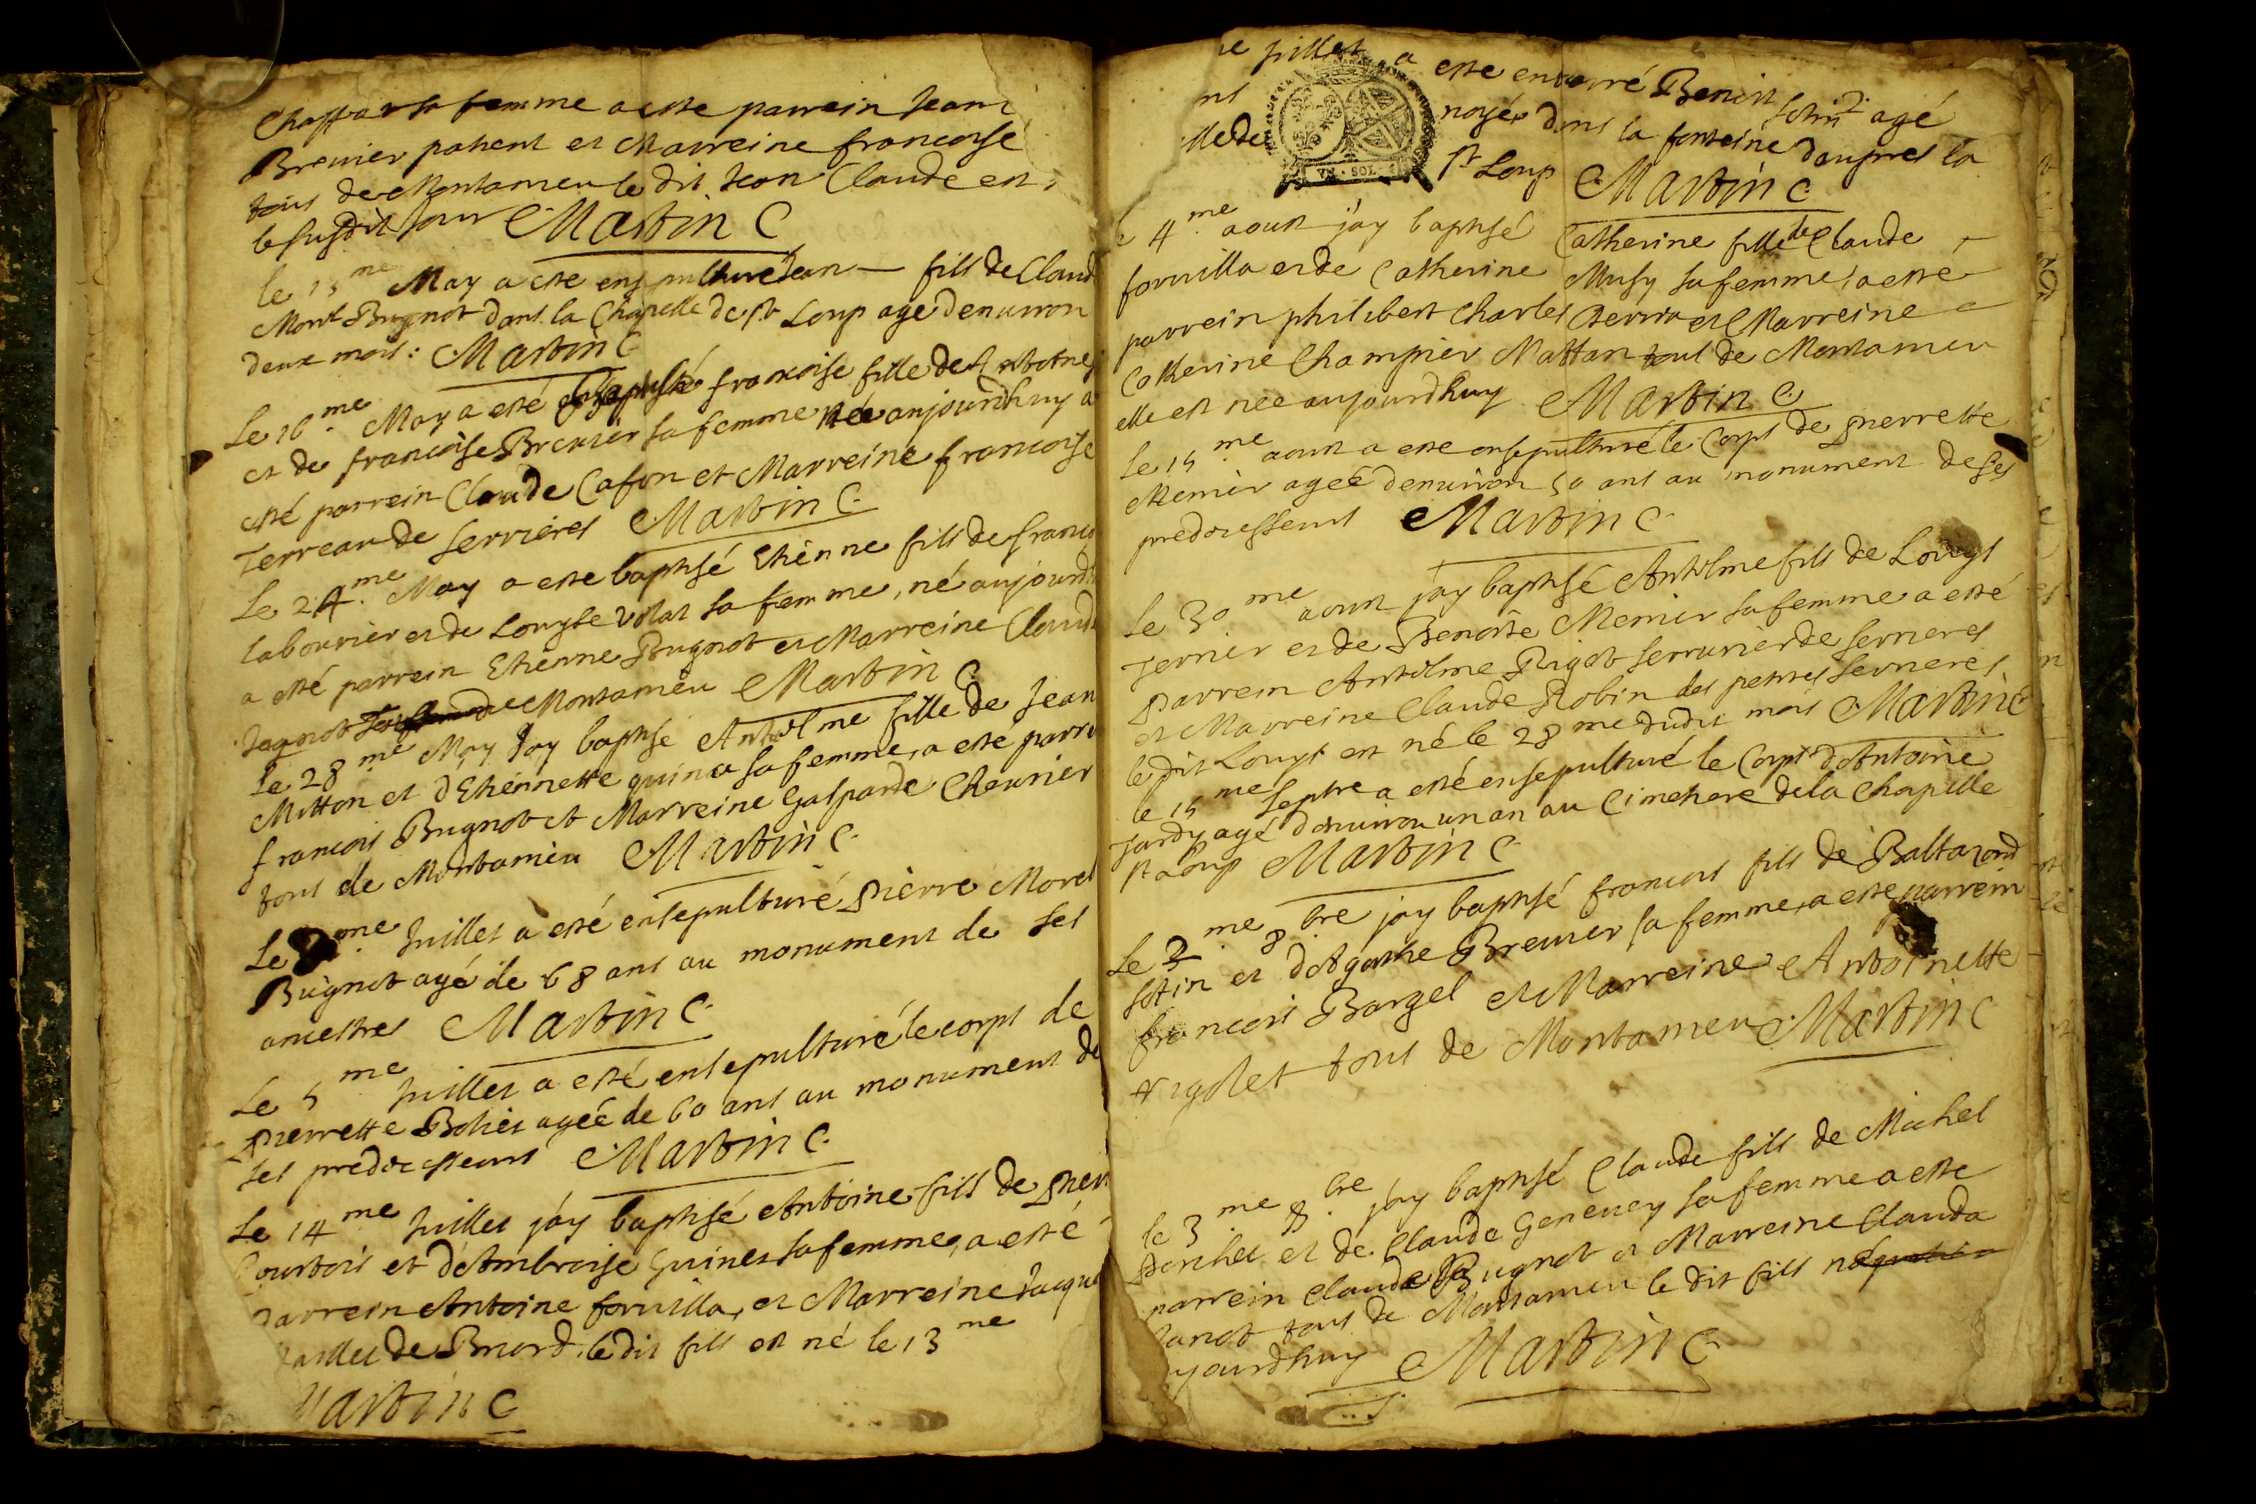 sa femme a este parrein Jean
Brevier patient et Marreine francoise
tous de Montameu le dit Jean Claude est
le susdit jour Martin C
le 15me May a este ensepulturé Jean fils de Claud
Mont Bugnot dans la Chapelle de st Loup agé denviron
deux mois : Martin C
Le 16me May a esté francoise fille de
et de francoise Brevier sa femme née aujourdhuy a
esté parrein Claude Cafon et Marreine francoise
Terreau de Serrieres Martin C.
Le 24me May a este baptisé Etienne fils de franco
labourier et de Louyse Volat sa femme, né aujourd
a esté parrein Etienne Bugnot et Marreine Claud
Jagnot de Montameu Martin C.
Le 28me May Jay baptisé Antelme fille de Jean
Mitton et dEtiennette quina sa femme, a este parre
francois Bugnot et Marreine Gasparde Chevrier
tous de Montameu Martin C.
Le me Juillet a esté ensepulturé Pierre Morel
Bugnot agé de 68 ans au monument de ses
ancestres Martin C.
Le 5me Juillet a esté ensepulturé le corps de
pierrette Bohier agée de 60 ans au monument de
ses predecesseurs Martin C.
Le 14me Juillet jáy baptisé Antoine fils de pier
Courtois et dAmbroise Guinet sa femme, a esté
parrein Antoine forvilla, et Marreine Jacque
de Briord, le dit fils est né le 13me
Martin C
Juillet a este enterré Benoit Sotin agé
noyée dans la fonteine daupres la
st Loup Martin C
le 4me aoust jáy baptisé Catherine fille de Claude
forvilla et de Catherine Musy sa femme, a esté
parrein philibert Charles et Marreine
Catherine Champier Mattan tous de Montameu
elle est née aujourdhuy Martin C.
Le 15me aoust a este ensepulturé le Corps de pierrette
Menier agée denviron 50 ans au monument de ses
predecesseurs Martin C.
Le 30me aoust jáy baptisé Antelme fils de Louys
Jernier et de Benoite Menier sa femme a esté
parrein Antelme Rigot serrurier de serrieres
et Marreine Claude Robin des petites serrieres
le dit Louys est né le 28me dudit mois Martin C
le 15me septre a esté ensepulturé le Corps dAntoine
Jardy agé denviron un an au Cimetiere dela Chapelle
st Loup Martin C.
Le 2me 8bre jáy baptisé francois fils de Baltazard
Sotin et dAgathe Brevier sa femme, a este parrein
francois Bargel et Marreine Antoinette
Rigolet tous de Montameu Martin C
le 3me 8bre jáy baptisé Claude fils de Michel
ponchet et de Claude Genevey sa femme a este
parrein Claude Bugnot et Marreine Clauda
tous de Montameu le dit fils né
aujourdhuy Martin C.